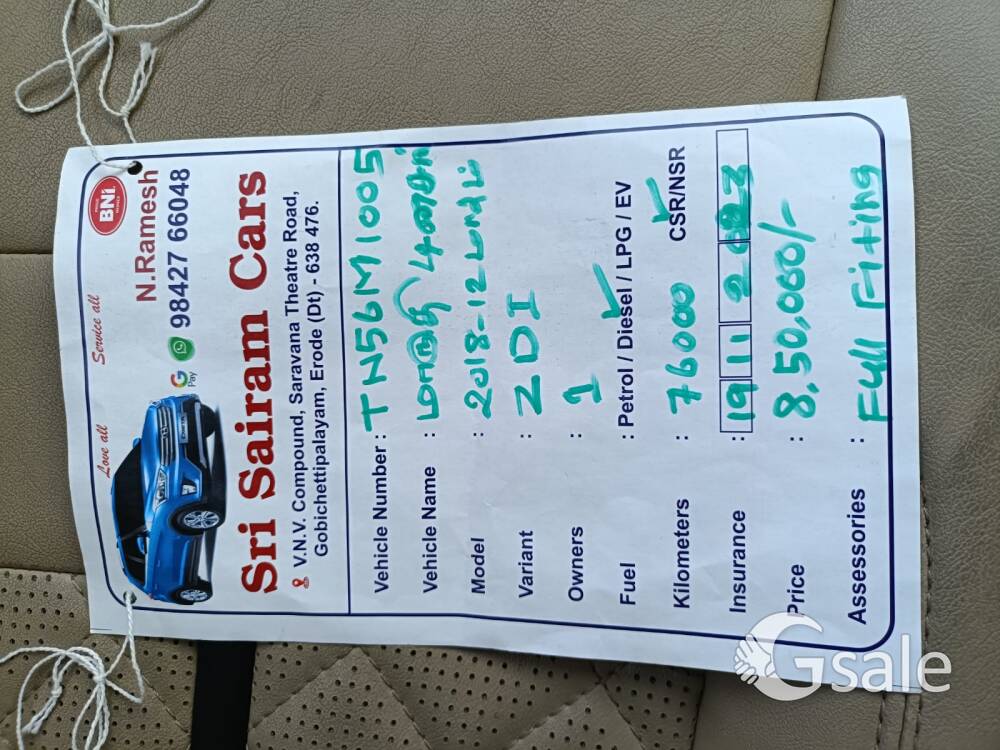 Love all Service all
BNi
N.Ramesh
G Pay 98427 66048
Sri Sairam Cars
V.N.V. Compound, Saravana Theatre Road,
Gobichettipalayam, Erode (Dt) - 638 476.
Vehicle Number : TN56M1005
Vehicle Name : மாருதி
Model : 2018-12
Variant : ZDI
Owners : 1
Fuel : Petrol / Diesel / LPG / EV
Kilometers : 76000 CSR/NSR
Insurance : 19 11
Price : 8,50,000/-
Assessories : Full Fitting
Gsale